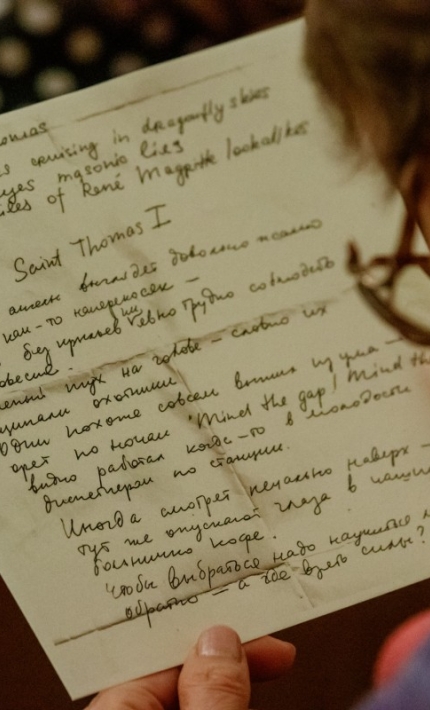 omas
s cruising in dragonfly skies
yes masonic lies
iles of René Magritte lookalikes
Saint Thomas I
ангелы выглядят довольно
как-то наперекосяк —
без крыльев им трудно соблюдать
пух на голове — словно их
щипали охотники
Один похоже совсем выжил из ума —
орет по ночам 'Mind the gap! Mind th
видно работал когда-то в молодости
диспетчером по станции.
Иногда смотрят печально наверх —
тут же опускают глаза в чашки
больнично кофе.
Чтобы выбраться надо научиться
обратно — а где взять силы?